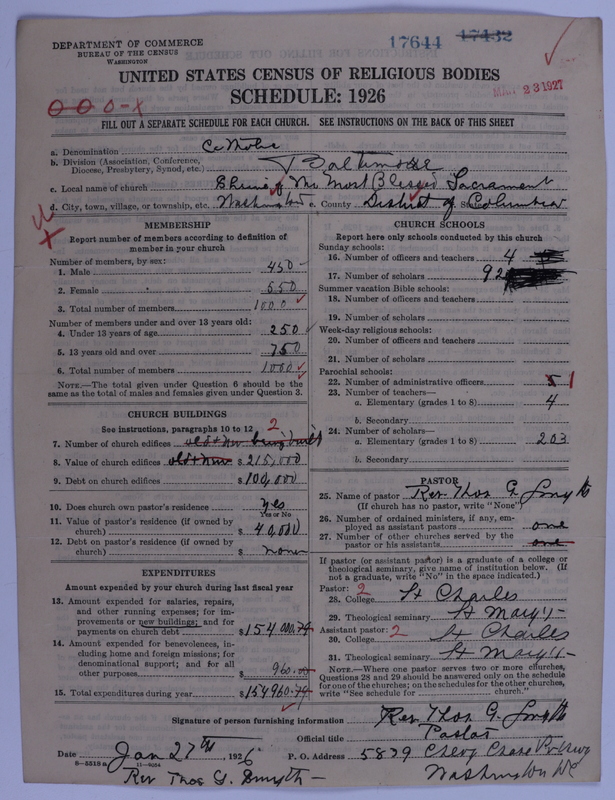 DEPARTMENT OF COMMERCE
BUREAU OF THE CENSUS
WASHINGTON
17644 17432
MAR 23 1927
UNITED STATES CENSUS OF RELIGIOUS BODIES
SCHEDULE: 1926
FILL OUT A SEPARATE SCHEDULE FOR EACH CHURCH. SEE INSTRUCTIONS ON THE BACK OF THIS SHEET
a. Denomination Catholic
b. Division (Association, Conference, Diocese, Presbytery, Synod, etc.) Baltimore
c. Local name of church Shrine of the Most Blessed Sacrament
d. City, town, village, or township, etc. Washington e. County District of Columbia
MEMBERSHIP
Report number of members according to definition of
member in your church
Number of members, by sex:
1. Male 450
2. Female 550
3. Total number of members 1000
Number of members under and over 13 years old:
4. Under 13 years of age 250
5. 13 years old and over 750
6. Total number of members 1000
NOTE.—The total given under Question 6 should be
same as the total of males and females given under Question 3.
CHURCH BUILDINGS
See instructions, paragraphs 10 to 12
7. Number of church edifices old + new being built 2
8. Value of church edifices old + new $215,000
9. Debt on church edifices $100,000
10. Does church own pastor's residence? yes
Yes or No
11. Value of pastor's residence (if owned by
church) $40,000
12. Debt on pastor's residence (if owned by
church) $ none
EXPENDITURES
Amount expended by your church during last fiscal year
13. Amount expended for salaries, repairs,
and other running expenses; for im-
provements or new buildings; and for
payments on church debt $154,000.79
14. Amount expended for benevolences, in-
cluding home and foreign missions; for
denominational support; and for all
other purposes $ 960.00
15. Total expenditures during year $154960.79
CHURCH SCHOOLS
Report here only schools conducted by this church
Sunday schools:
16. Number of officers and teachers 4
17. Number of scholars 92
Summer vacation Bible schools:
18. Number of officers and teachers
19. Number of scholars
Week-day religious schools:
20. Number of officers and teachers
21. Number of scholars
Parochial schools:
22. Number of administrative officers 5 1
23. Number of teachers—
a. Elementary (grades 1 to 8) 4
b. Secondary
24. Number of scholars—
a. Elementary (grades 1 to 8) 203
b. Secondary
PASTOR
25. Name of pastor Rev. Thos G. Smyth
(If church has no pastor, write "None")
26. Number of ordained ministers, if any, em-
ployed as assistant pastors one
27. Number of other churches served by the
pastor or his assistants one
If pastor (or assistant pastor) is a graduate of a college or
theological seminary, give name of institution below. (If
not a graduate, write "No" in the space indicated.)
Pastor: 2
28. College St Charles
29. Theological seminary St Mary's
Assistant pastor: 2
30. College St Charles
31. Theological seminary St Mary's
NOTE.—Where one pastor serves two or more churches,
Questions 28 and 29 should be answered only on the schedule
for one of the churches; on the schedules for the other churches,
write "See schedule for church."
Signature of person furnishing information Rev. Thos G. Smyth
Official title Pastor
Date Jan 27th, 1926 P. O. Address 5879 Chevy Chase Parkway
8-5518 a 11-9054
Rev Thos G. Smyth
Washington DC